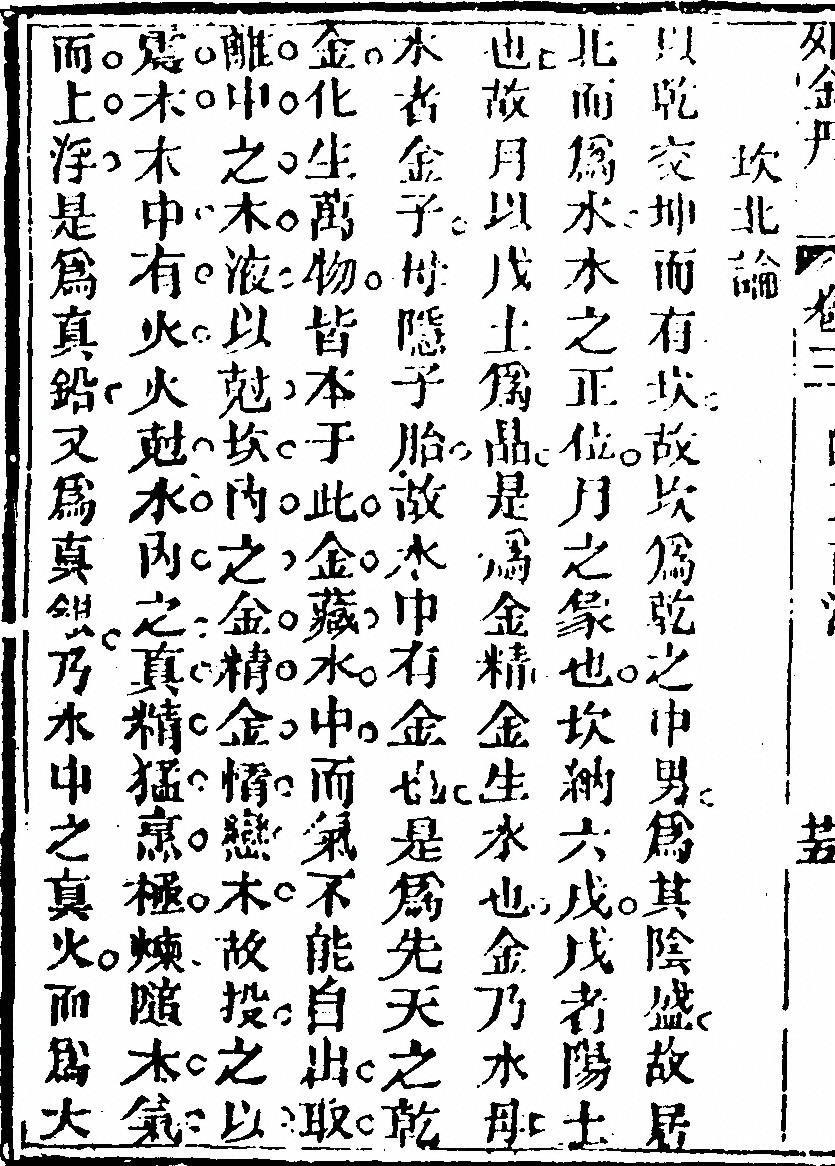 外金丹 卷三 五
坎北論
以乾交坤而有坎。故坎爲乾之中男。爲其陰盛。故居
北而爲水。水之正位。月之象也。坎納六戊。戊者陽土
也。故月以戊土爲品。是爲金精。金生水也。金乃水母。
水者金子。母隱子胎。故水中有金也。是爲先天之乾
金。化生萬物。皆本于此。金藏水中。而氣不能自出。取
離中之木液。以尅坎內之金精。金情戀木。故投之以
震木。木中有火。火尅水內之真精。猛烹極煉。隨木氣
而上浮。是爲真鉛。又爲真銀。乃水中之真火。而爲大